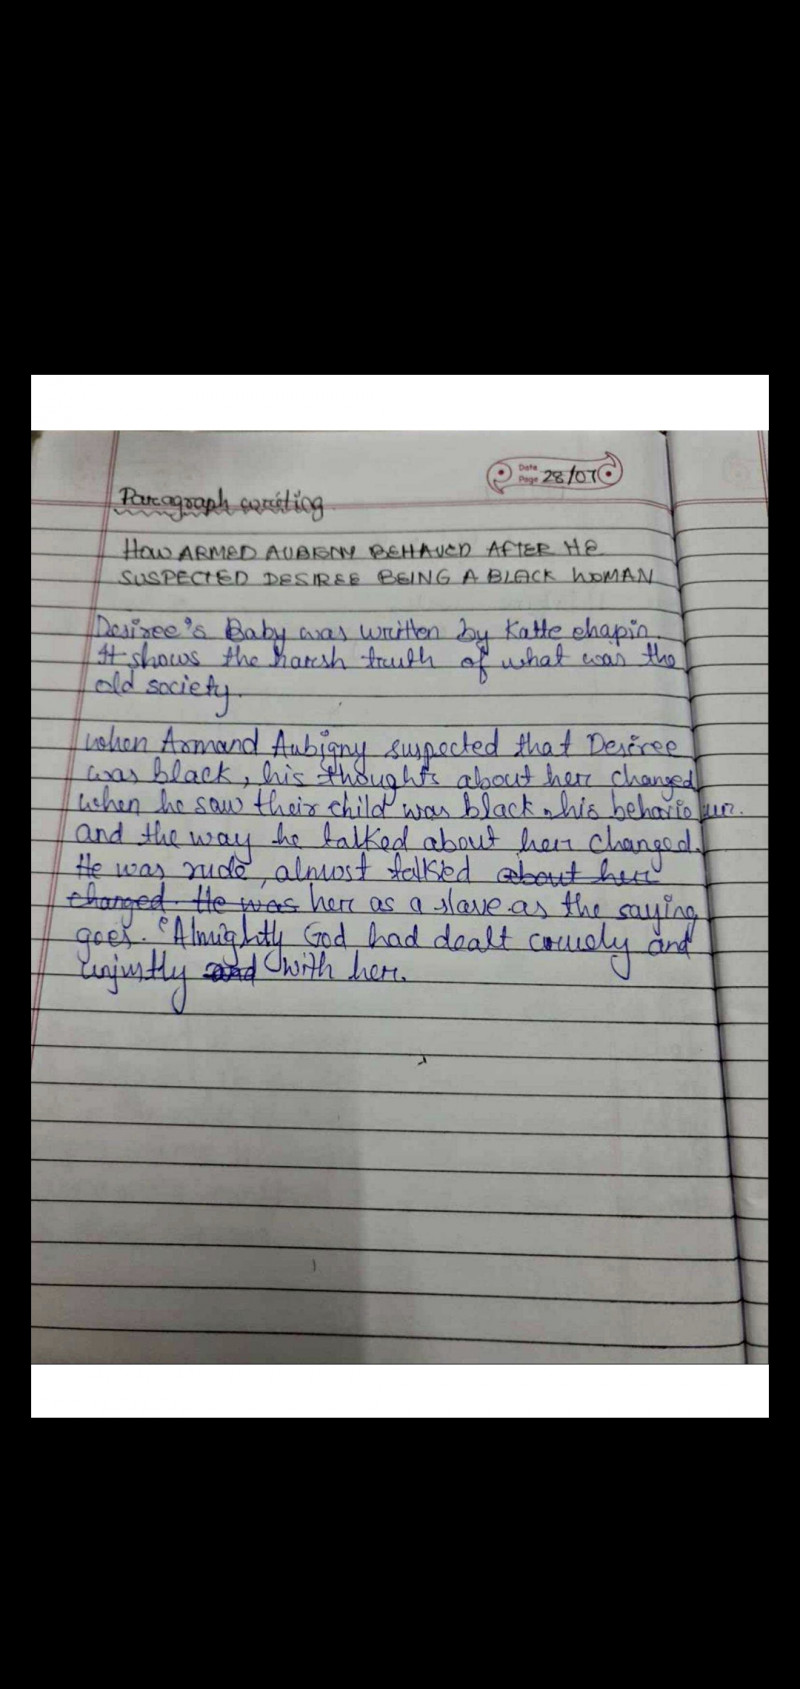 Date
Page 28/07
Paragraph writing
HOW ARMED AUBIGNY BEHAVED AFTER HE
SUSPECTED DESIREE BEING A BLACK WOMAN
Desiree's Baby was written by Katte chapin.
It shows the harsh truth of what was the
old society.
when Armand Aubigny suspected that Desiree
was black, his thoughts about her changed
when he saw their child was black, his behaviour.
and the way he talked about her changed.
He was rude, almost talked about her
changed. He was her as a slave as the saying
goes. "Almightly God had dealt cruely and
unjustly and with her.